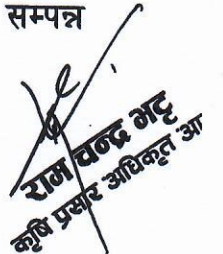 सम्पन्न
राम चन्द्र भट्ट
कृषि प्रसार अधिकृत आ